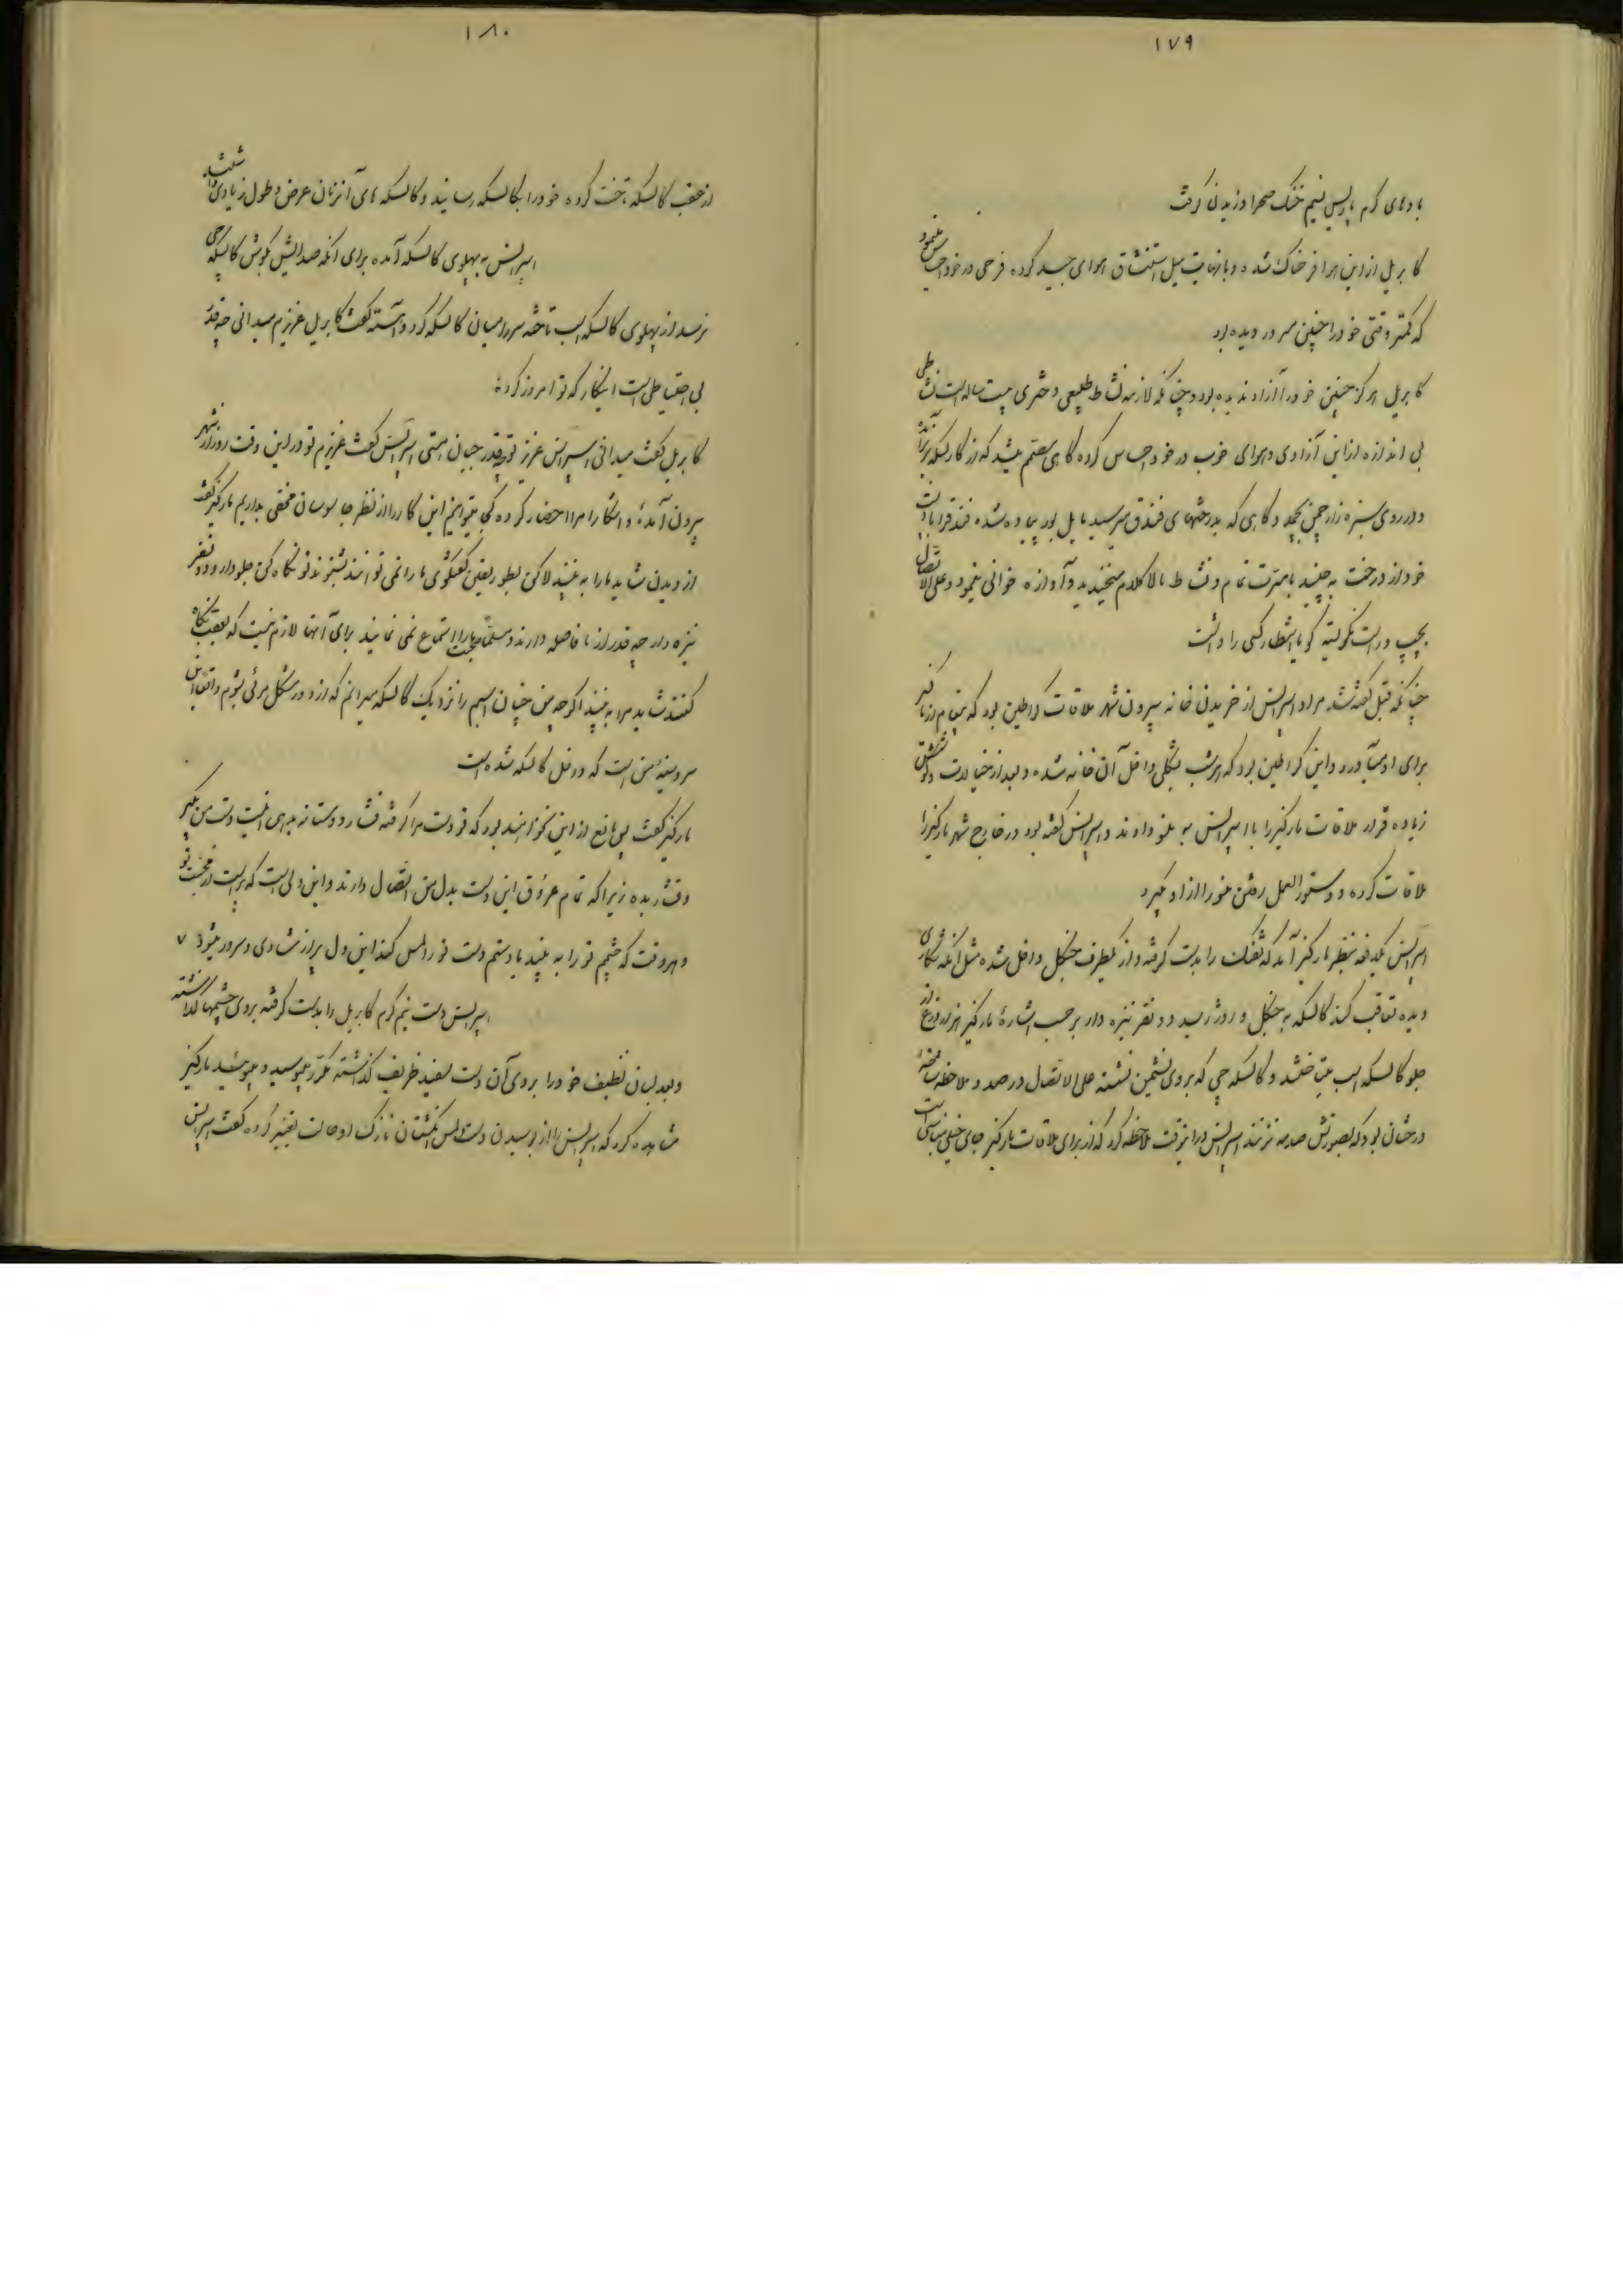 ۱۷۹
بادهای گرم پاریس نسیم خنک صحرا وزیدن گرفت
کابریل از این هوا فرحناک شده و با نهایت میل استنشاق هوای جید کرده فرحی در خود احساس مینمود
که کمتر وقتی خود را چنین مسرور دیده بود
کابریل هرگز چنین خود را آزاد ندیده بود و چنانکه لازمه نشاط طبیعی دختری بیست ساله است نشاطی
بی اندازه از این آزادی و هوای خوب در خود احساس کرده گاهی مصمم میشد که از کالسکه بزیر آمده
و در روی سبزه زار چمن بچمد و گاهی که بدرختهای فندق میرسید مایل بود پیاده شده فندقرا بادست
خود از درخت به چیند با مسرت تمام و نشاط بالا کلام میخندید و آوازه خوانی مینمود و علی الاتصال
بچپ و راست نگریسته گویا انتظار کسی را داشت
چنانکه قبل گفته شد مراد اسپرانس از خریدن خانه بیرون شهر ملاقات کراطین بود که پیغام از مارکیز
برای او میآورد و این کراطین بود که هر شب بشکلی داخل آن خانه شده و بعد از خیالات و
زیاده قرار ملاقات مارکیز را با اسپرانس به ملنو دادند و اسپرانس گفته بود در خارج شهر مارکیز را
ملاقات کرده و دستورالعمل رفتن ملنو را از او بگیرد
اسپرانس یکدفعه بنظر مارکیز آمد که تفنگ را بدست گرفته و از یکطرف جنگل داخل شده مثل آنکه شکاری
دیده تعاقب کند کالسکه به جنگل ورود رسید دو نفر نیزه دار بر حسب اشاره مارکیز هزار ذرع از
جلو کالسکه اسب میتاختند و کالسکه چی که بروی نشیمن نشسته علی الاتصال در صدد ملاحظه شاخه
درختان بود که بصورتش صدمه نزنند اسپرانس در اینوقت ملاحظه کرد که از برای ملاقات مارکیز جای خیلی مناسبی است
۱۸۰
از عقب کالسکه تاخت کرده خود را بکالسکه رسانید و کالسکه های آنزمان عرض و طول زیادی داشتند
اسپرانس به پهلوی کالسکه آمده برای آنکه صدایش بگوش کالسکه چی
نرسد از پهلوی کالسکه اسب تاخته سر را میان کالسکه کرد و آهسته گفت کابریل عزیزم میدانی چه قدر
بی احتیاطی است اینکار که تو امروز کرده
کابریل گفت میدانی اسپرانس عزیز تو چه قدر جبان هستی اسپرانس گفت عزیزم تو در این وقت روز از شهر
بیرون آمده و آشکارا مرا احضار کرده کی میتوانیم این کار را از نظر جاسوسان مخفی بداریم مارکیز گفت
از دیدن شاید ما را به بینند لاکن بطور یقین گفتگوی ما را نمی توانند بشنوند تو نگاه کن جلودار و دو نفر
نیزه دار چه قدر از ما فاصله دارند و مسلما صحبت ما را استماع نمی نمایند برای آنها لازم نیست که بعقب نگاه
کنند شاید مرا به بینند اگرچه من چنان اسبم را نزدیک کالسکه میرانم که از دور مشکل مرئی بشوم و اتفاقا این
سر و سینهٔ من است که داخل کالسکه شده است
مارکیز گفت پس مانع از این نخواهند بود که تو دست مرا گرفته فشار دوستانه بدهی الیت دست من بگیر
و فشار بده زیرا که تمام عروق این دست بدل من اتصال دارند و این دلی است که پر است از محبت تو
و هر وقت که چشمم تو را به بیند یا دستم دست تو را لمس کند این دل پر از شادی و سرور میشود ۷
اسپرانس دست نیم گرم کابریل را بدست گرفته بروی چشمها گذاشته
و بعد لبان نظیف خود را بروی آن دست سفید ظریف گذاشته مکرر میبوسید و میبوئید مارکیز
مشاهده کرد که اسپرانس را از بوسیدن دست و لمس انگشتان نازک او حالت تغییر کرده گفت اسپرانس